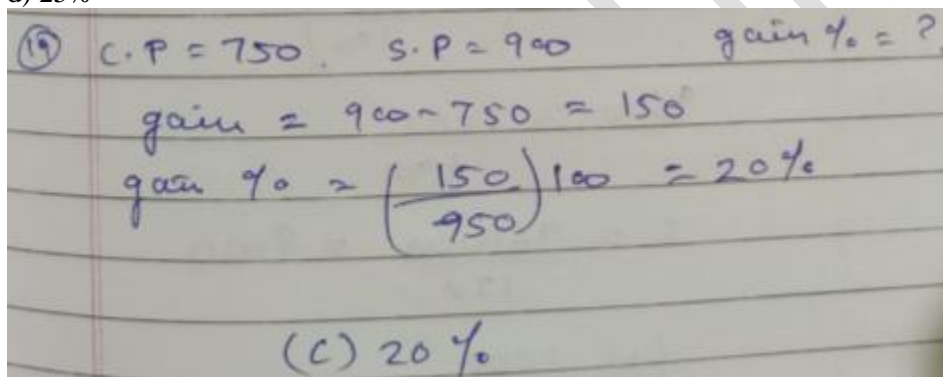 d) 25%
(19) C.P = 750. S.P = 900 gain % = ?
gain = 900 - 750 = 150
gain % = (150/950) 100 = 20%
(C) 20%